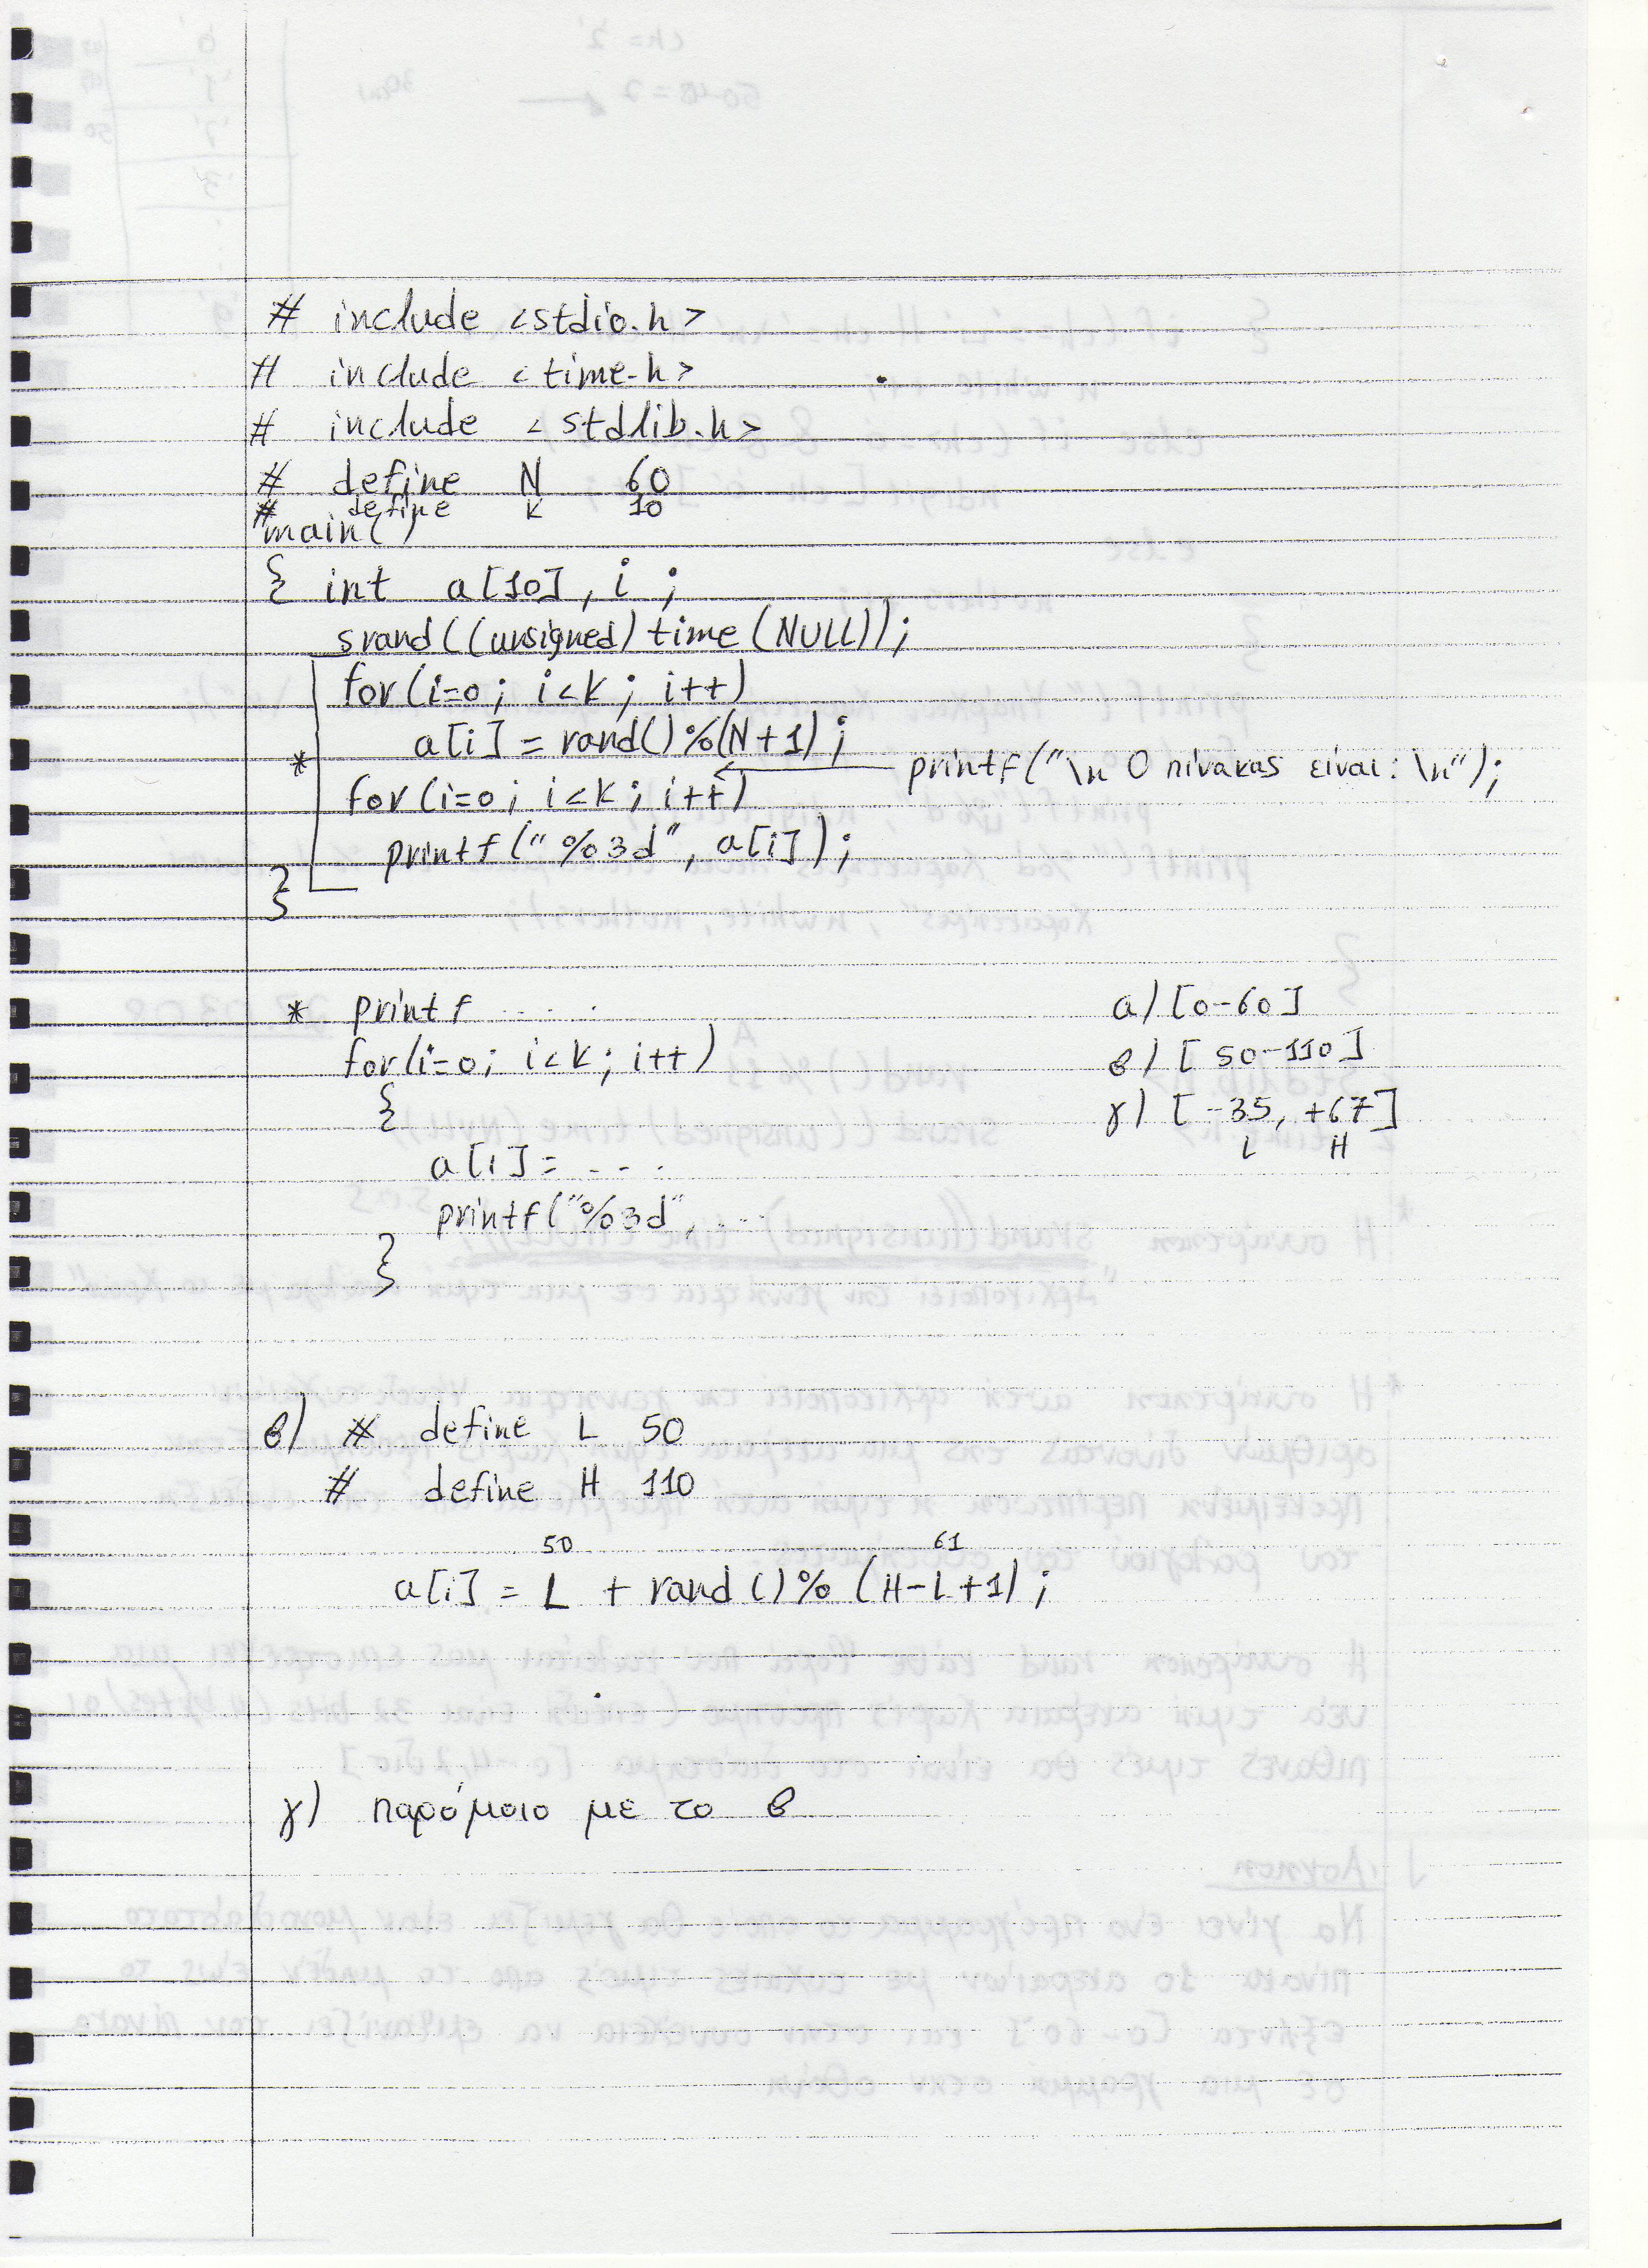 # include <stdio.h>
# include <time.h>
# include <stdlib.h>
# define N 60
# define K 10
main()
{ int a[10], i ;
srand((unsigned) time (NULL));
for (i=0 ; i<k ; i++)
a[i] = rand()%(N+1) ;
* printf("\n Ο πίνακας είναι: \n");
for (i=0 ; i<k ; i++)
printf("%3d", a[i]);
}
* printf ..... α) [0-60]
for(i=0; i<k; i++) β) [50-110]
{ γ) [-35, +67]
L H
a[i]= ....
printf("%3d", ...
}
β) # define L 50
# define H 110
50 61
a[i] = L + rand()% (H-L+1) ;
γ) παρόμοιο με το β